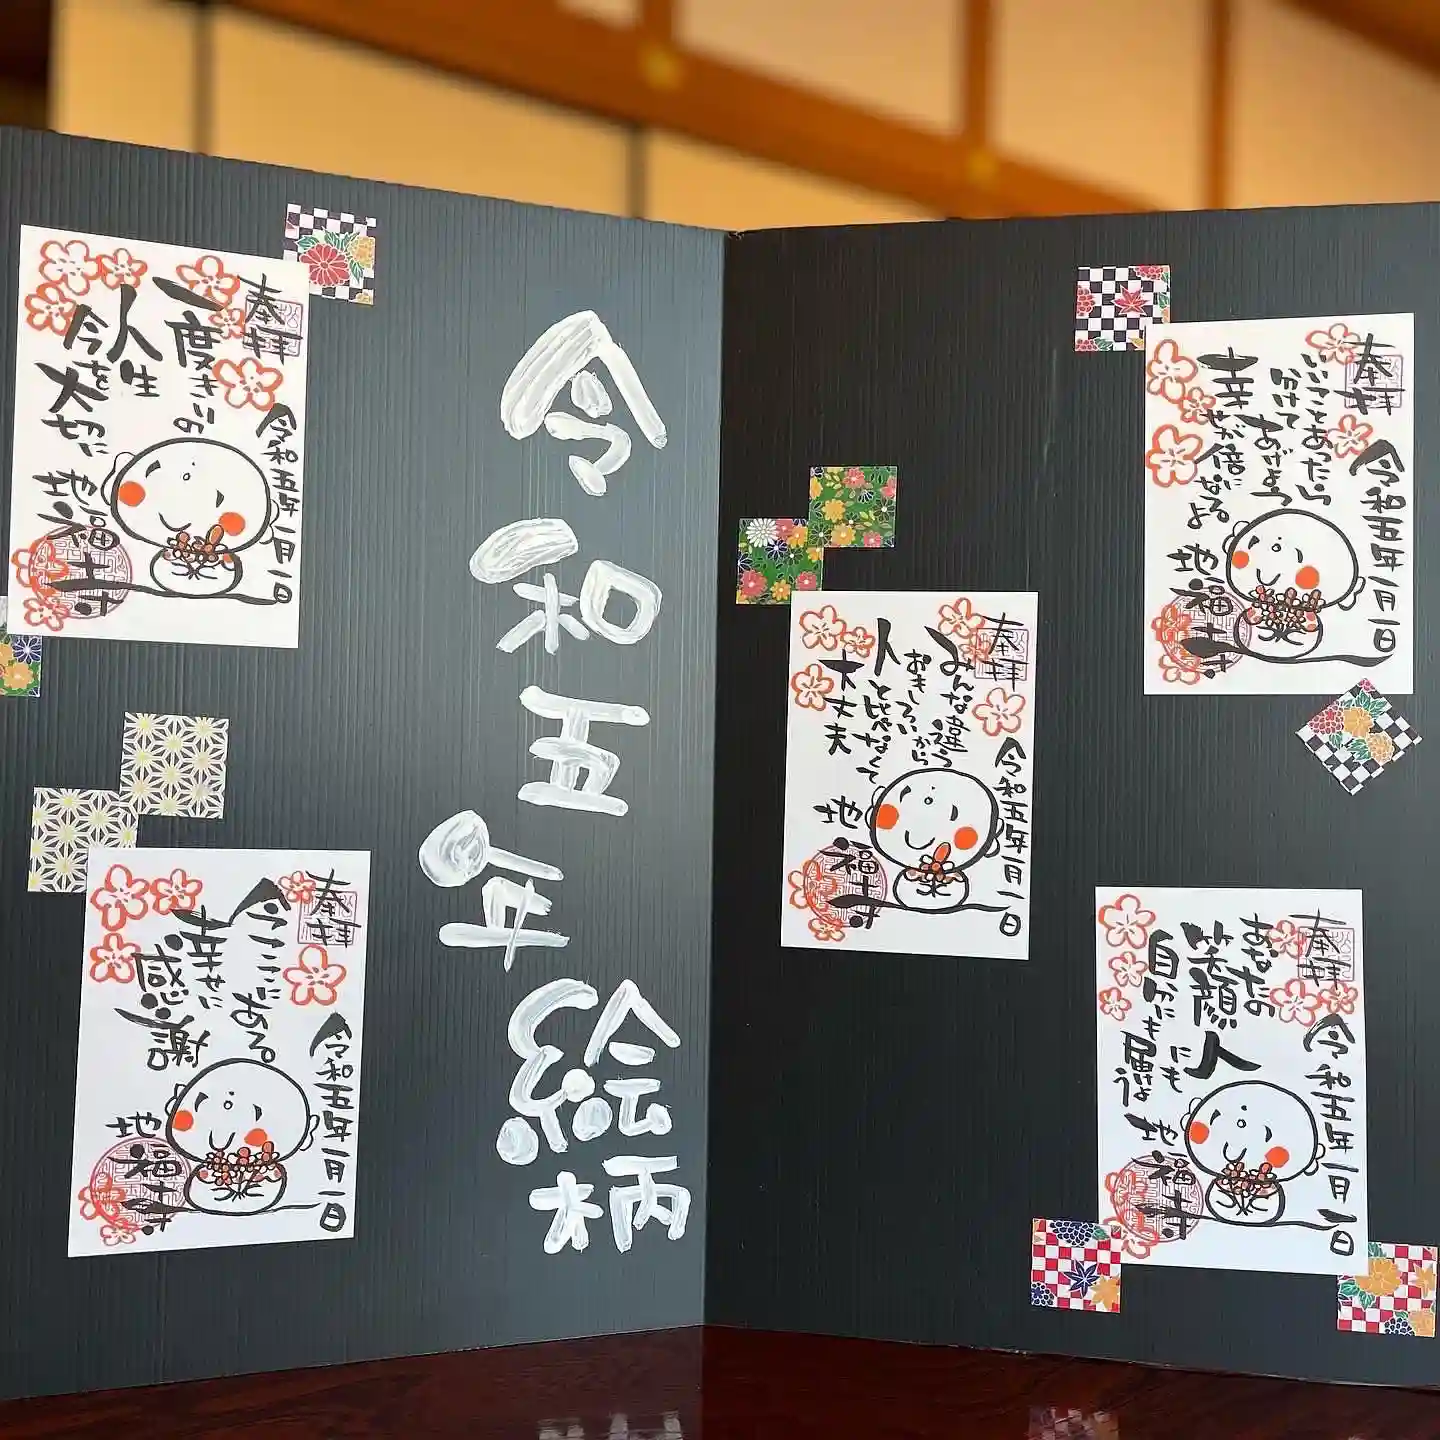 令和五年絵柄
奉拝
一度きりの
人生
今を大切に
令和五年一月一日
地福寺
奉拝
今ここにある。
幸せに
感謝
令和五年一月一日
地福寺
奉拝
いいことあったら
分けて
あげよう
幸せが倍になるよ
令和五年一月一日
地福寺
奉拝
みんな違う
おもしろいから
人と比べなくて
大丈夫
令和五年一月一日
地福寺
奉拝
あなたの
笑顔
人にも
自分にも
届けよう
令和五年一月一日
地福寺